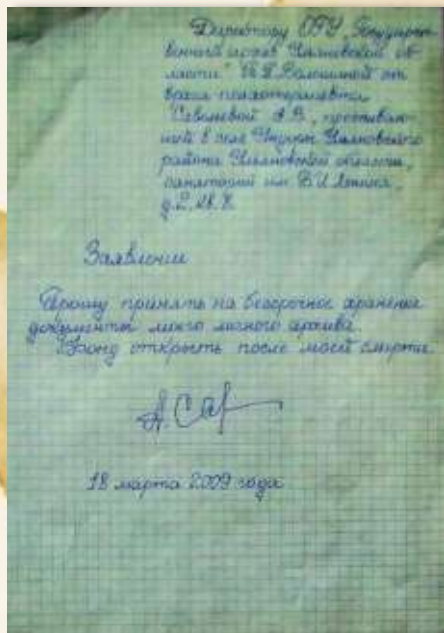 Директору ОГУ "Государст-
венный архив Ульяновской об-
ласти" от
врача-психотерапевта
А.В., проживаю-
щей в селе Ундоры Ульяновского
района Ульяновской области,
санаторий им. В.И. Ленина,
Заявление
Прошу принять на бессрочное хранение
документы моего личного архива.
Фонд открыть после моей смерти.
А. Сав
18 марта 2009 года